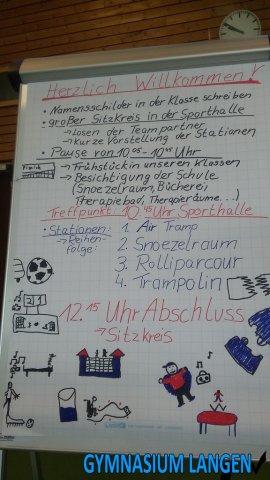 Herzlich Willkommen!
• Namensschilder in der Klasse schreiben
• großer Sitzkreis in der Sporthalle
→ Losen der Teampartner
→ kurze Vorstellung der Stationen
• Pause von 10⁰⁵ - 10⁴⁵ Uhr
→ Frühstück in unseren Klassen
→ Besichtigung der Schule
(Snoezelraum, Bücherei,
Therapiebad, Therapieräume...)
Treffpunkt: 10⁴⁵ Uhr Sporthalle
• Stationen:
→ Reihen-
folge:
1. Air Tramp
2. Snoezelraum
3. Rolliparcour
4. Trampolin
12.¹⁵ Uhr Abschluss
→ Sitzkreis
GYMNASIUM LANGEN